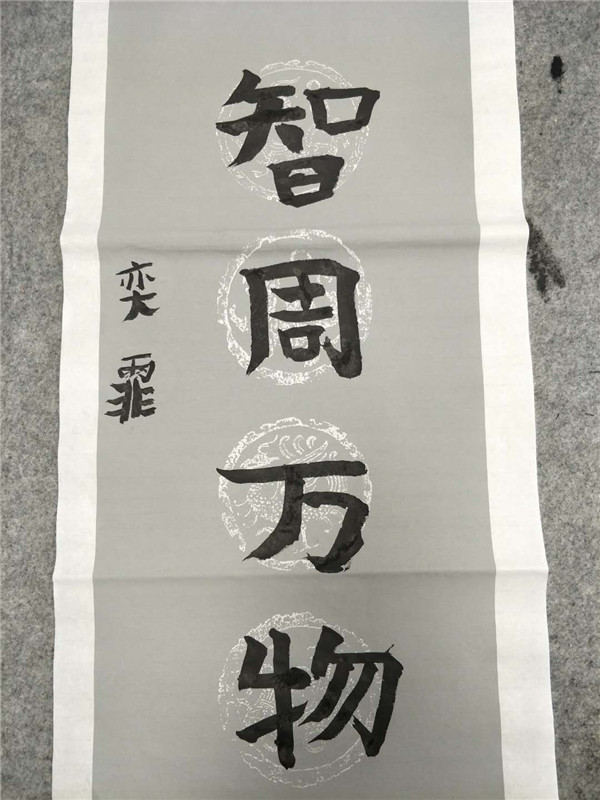 智周万物
奕霏